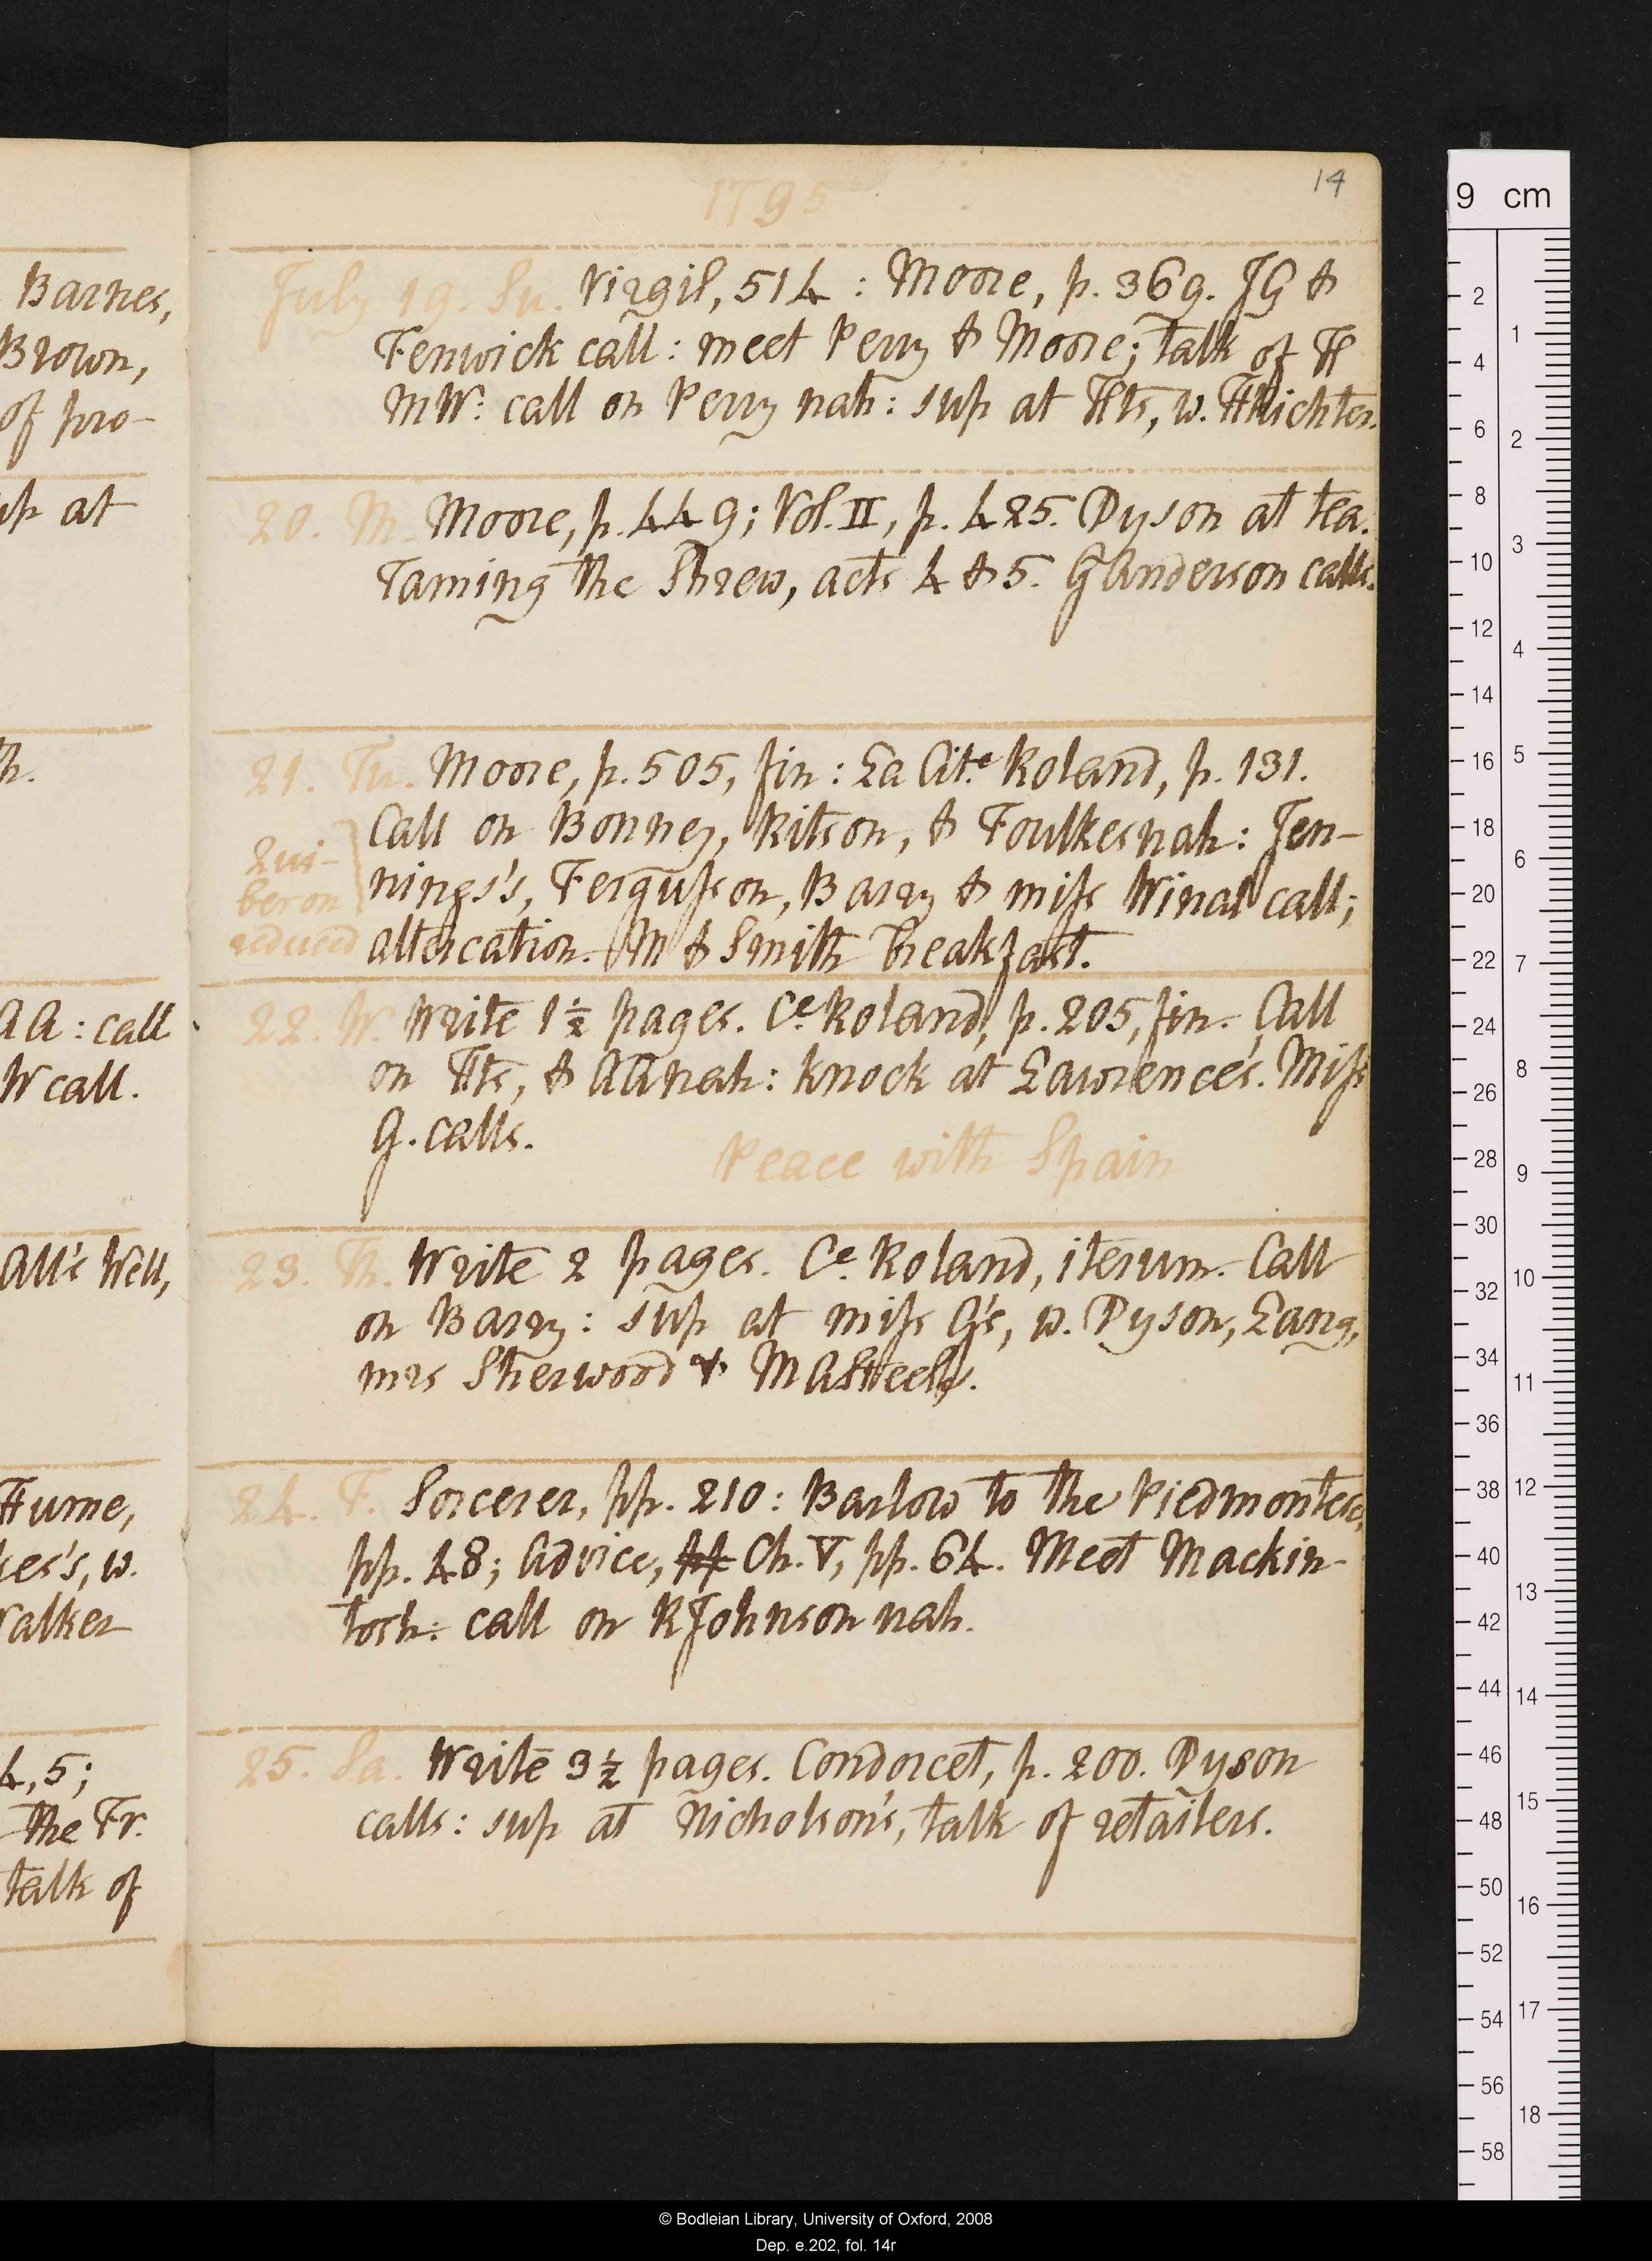 14
1795
Barnes,
Brown,
of pro-
up at
h.
AA: call
W call.
All's Well,
Hume,
kes's, w.
Walker
4, 5;
the Fr.
talk of
July 19. Su. Virgil, 514: Moore, p. 369. JG &
Fenwick call: meet Perry & Moore; talk of H
MW: call on Perry nah: sup at Hts, w. HRichter.
20. M. Moore, p. 449; Vol. II, p. 425. Dyson at tea.
Taming the Shrew, acts 4 & 5. GAnderson calls.
21. Tu. Moore, p. 505, fin: La Cite. Roland, p. 131.
Call on Bonney, Ritson, & Foulkes nah: Jen-
nings's, Fergusson, Barry & miss Winal call;
altercation. M & Smith breakfast.
Qui-
beron
reduced
22. W. Write 1½ pages. Ce. Roland, p. 205, fin. Call
on Hts, & AA nah: knock at Lawrence's. Miss
G. calls.
Peace with Spain
23. Th. Write 2 pages. Ce. Roland, iterum. Call
on Barry: sup at miss G's, w. Dyson, Lang,
mrs Sherwood & MASteele.
24. F. Sorcerer, pp. 210: Barlow to the Piedmontese,
pp. 48; Advice, pp Ch. V, pp. 64. Meet Mackin-
tosh: call on RJohnson nah.
25. Sa. Write 3½ pages. Condorcet, p. 200. Dyson
calls: sup at Nicholson's, talk of retailers.
9 cm
2
4
6
8
10
12
14
16
18
20
22
24
26
28
30
32
34
36
38
40
42
44
46
48
50
52
54
56
58
1
2
3
4
5
6
7
8
9
10
11
12
13
14
15
16
17
18
© Bodleian Library, University of Oxford, 2008
Dep. e.202, fol. 14r